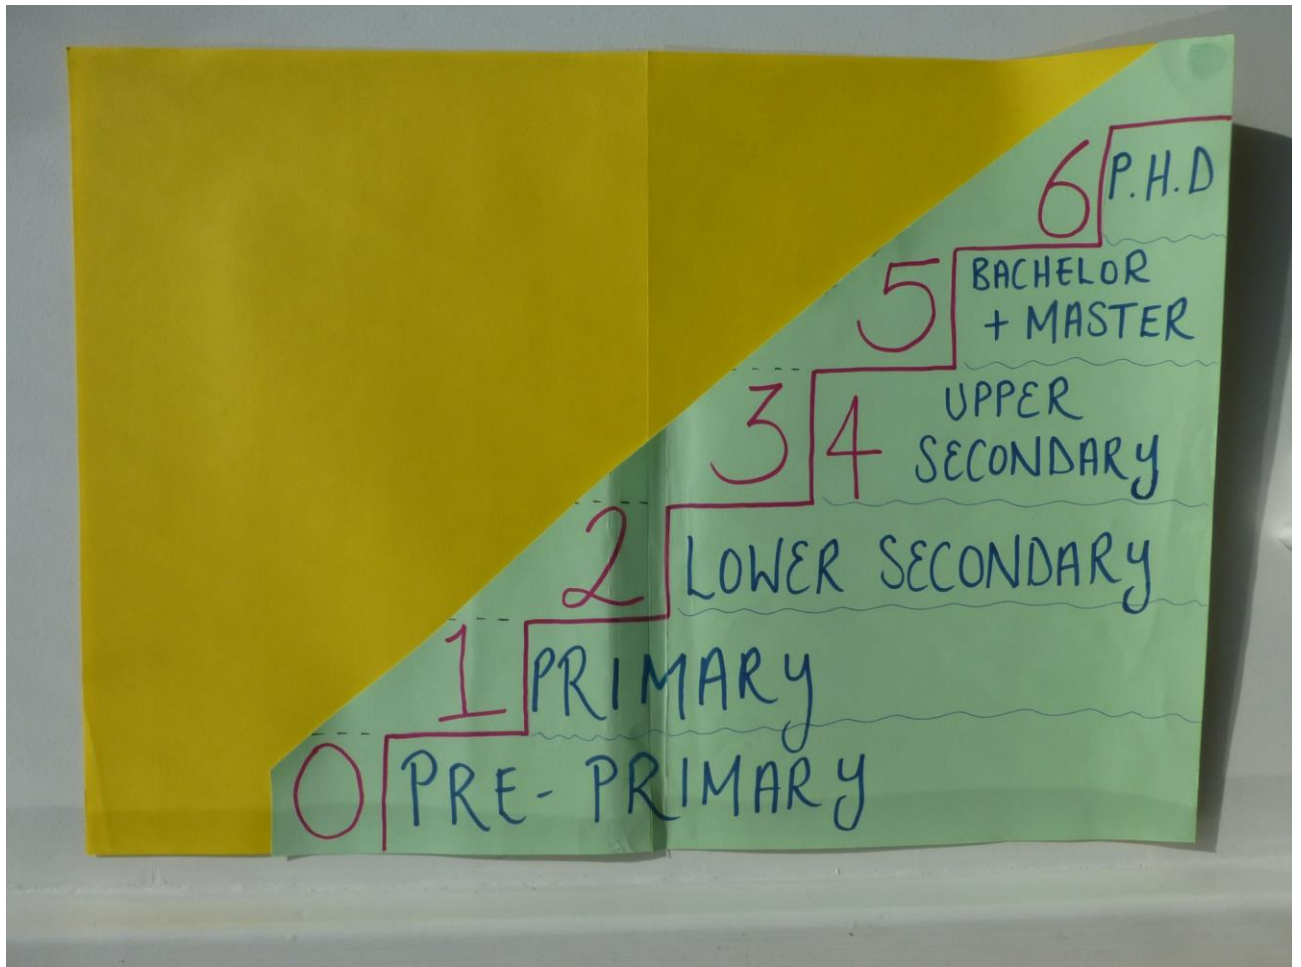 6 P.H.D
5 BACHELOR
+ MASTER
3 4 UPPER
SECONDARY
2 LOWER SECONDARY
1 PRIMARY
0 PRE-PRIMARY